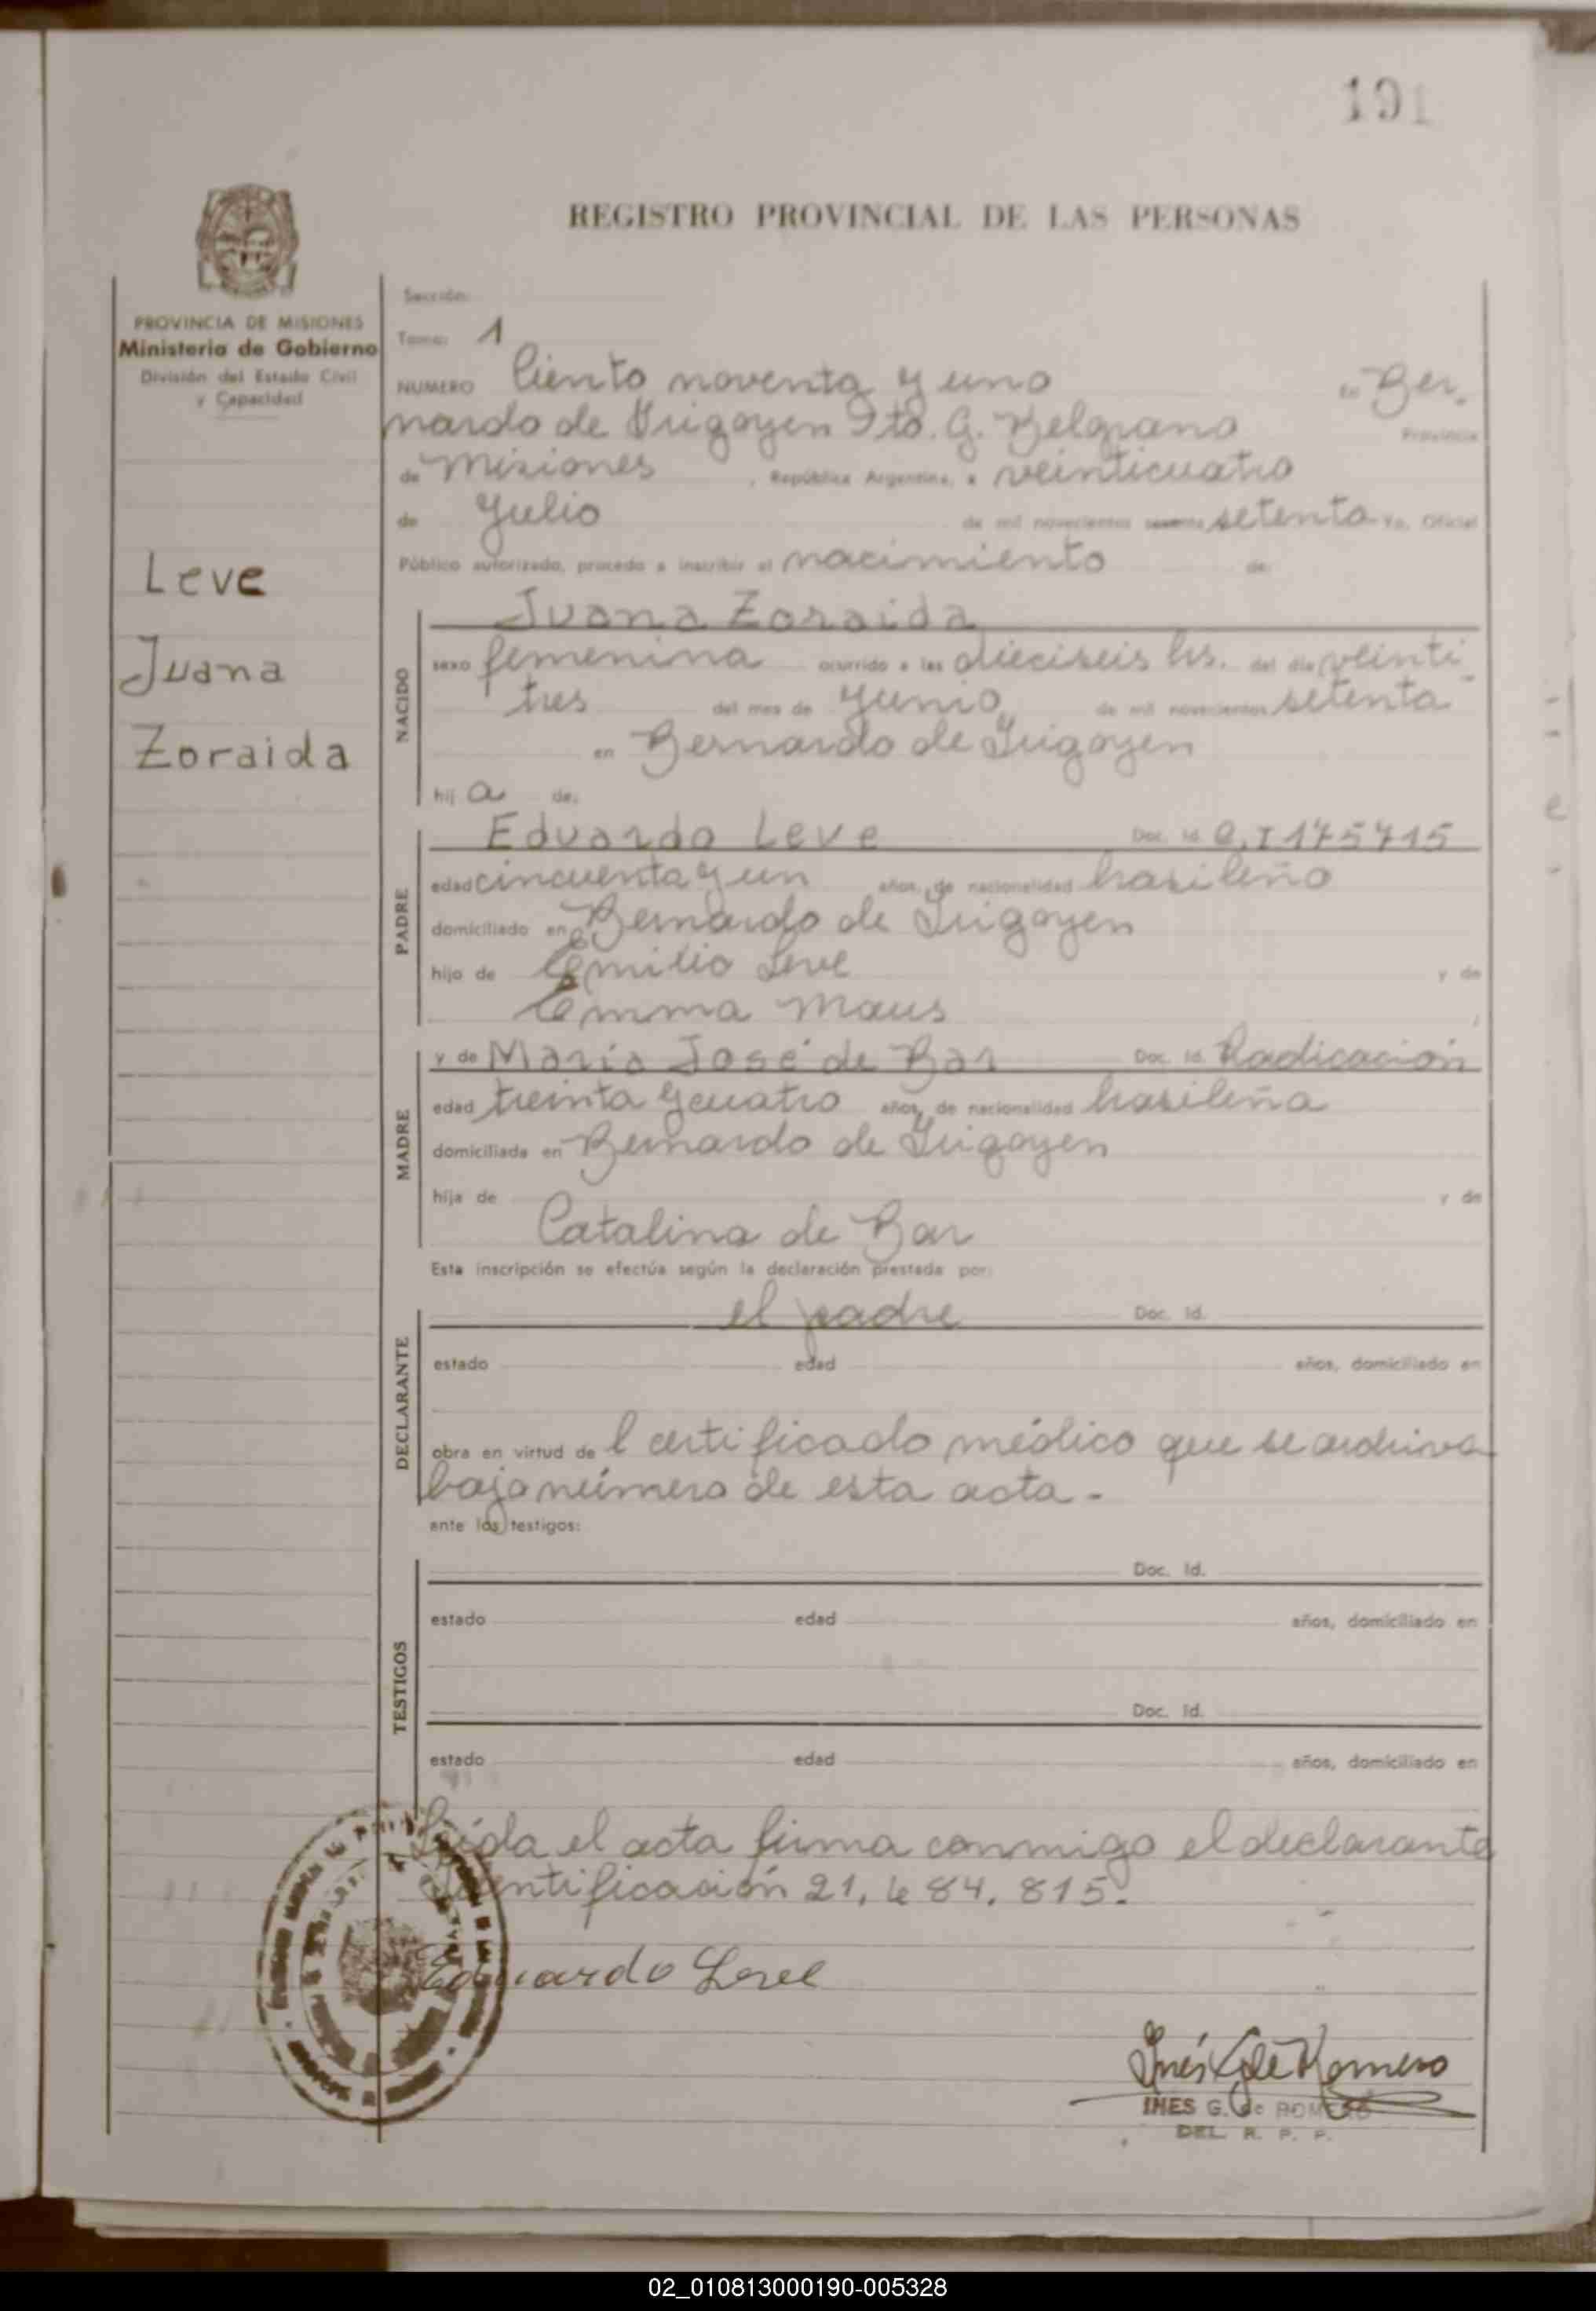 191
REGISTRO PROVINCIAL DE LAS PERSONAS
PROVINCIA DE MISIONES
Ministerio de Gobierno
División del Estado Civil
y Capacidad
Leve
Juana
Zoraida
Sección:
Tomo: 1
NUMERO Ciento noventa y uno en Ber.
nardo de Irigoyen Dto. G. Belgrano Provincia
de Misiones, República Argentina, a veinticuatro
de Julio de mil novecientos sesenta setenta Yo, Oficial
Público autorizado, procedo a inscribir el nacimiento de:
NACIDO
Juana Zoraida
sexo femenina ocurrido a las dieciseis hs. del día veinti
tres del mes de Junio de mil novecientos setenta
en Bernardo de Irigoyen
hij a de:
PADRE
Eduardo Leve Doc. Id. C.I 175715
edad cincuenta y un años, de nacionalidad brasileño
domiciliado en Bernardo de Irigoyen
hijo de Emilio Leve y de
Emma Maus
MADRE
y de María José de Bar Doc. Id. Radicación
edad treinta y cuatro años, de nacionalidad brasileña
domiciliada en Bernardo de Irigoyen
hija de y de
Catalina de Bar
Esta inscripción se efectúa según la declaración prestada por:
DECLARANTE
el padre Doc. Id.
estado edad años, domiciliado en
obra en virtud de l certificado médico que se archiva
bajo número de esta acta -
ante los testigos:
TESTIGOS
Doc. Id.
estado edad años, domiciliado en
Doc. Id.
estado edad años, domiciliado en
Leída el acta firma conmigo el declarante
identificación 21, le 84. 815.
Eduardo Leve
Inés G de Romero
INES G. de ROMERO
DEL. R. P. P.
02_010813000190-005328